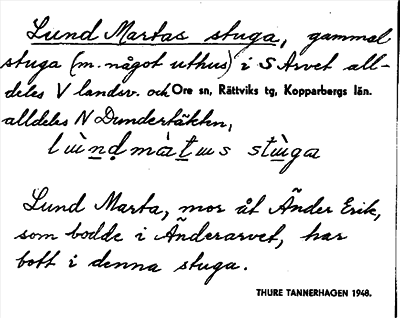 Lund Martas stuga, gammal
stuga (m. något uthus) i S Arvet all-
deles V landsv. och Ore sn, Rättviks tg, Kopparbergs län.
alldeles N Dundertäkten,
Lund Marta, mor åt Änder Erik,
som bodde i Änderarvet, har
bott i denna stuga.
THURE TANNERHAGEN 1948.